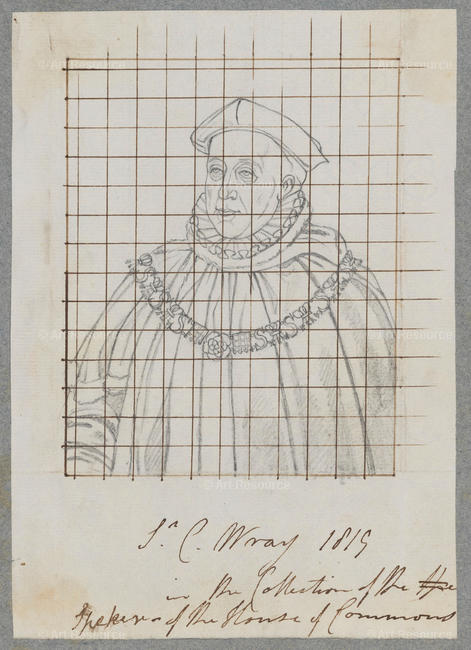 Sr. C. Wray 1819
in the Collection of the
Speker of the House of Commons
© Art Resource